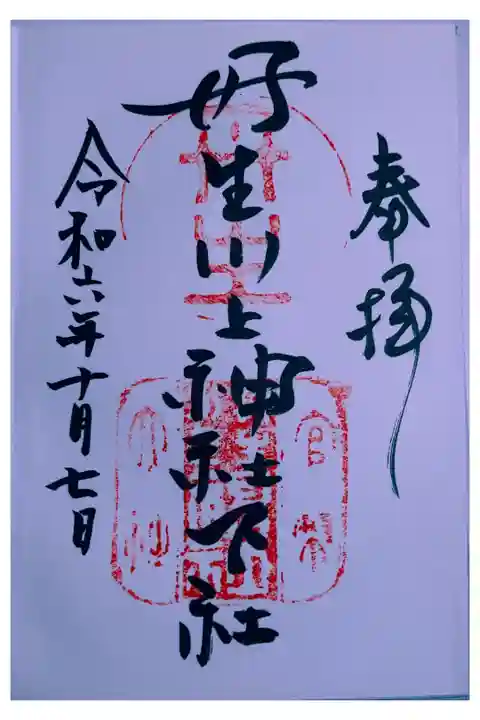 奉拝
丹生川上神社下社
令和六年十月七日